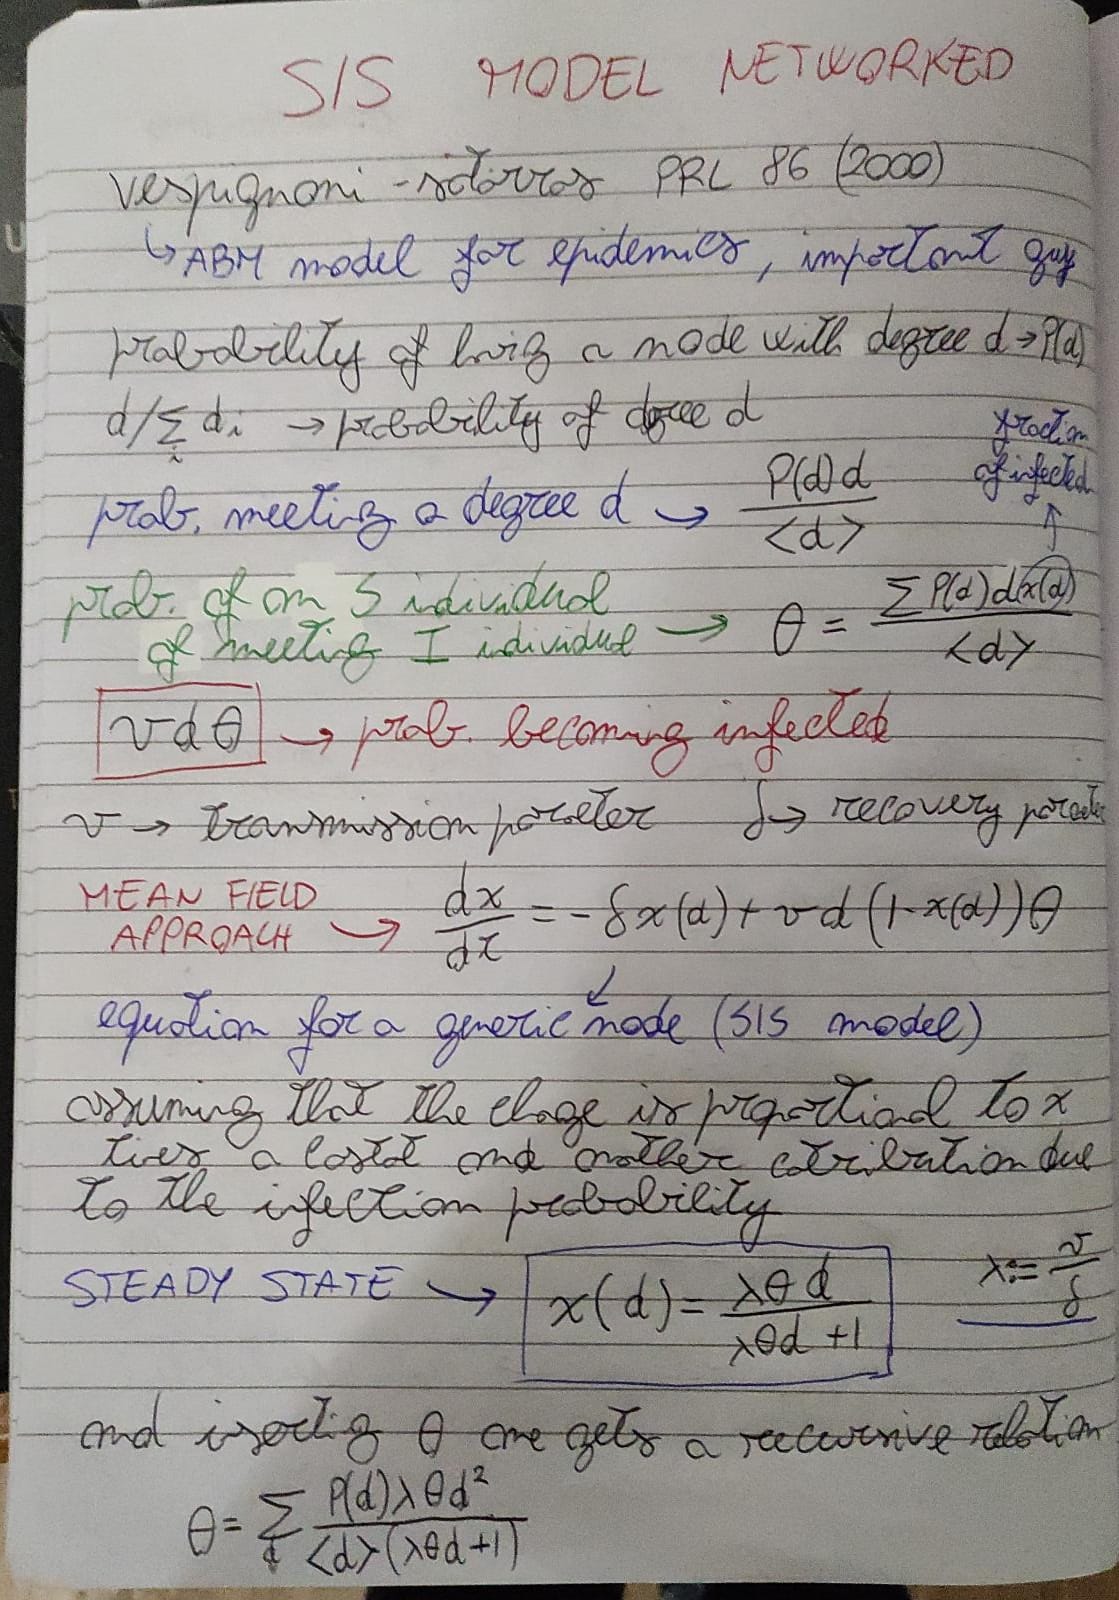 SIS MODEL NETWORKED
Vespignani - satorras PRL 86 (2000)
↳ ABM model for epidemics, important guy
probability of hvig a node with degree d → P(d)
d/∑_i d_i → probability of dgree d
fraction of infected
prob. meeting a degree d → P(d)d / <d>
↑
prob. of an S individual
of meeting I individual → θ = ∑ P(d) d x(d) / <d>
v d θ → prob. becoming infected
v → transmission paraeter δ → recovery
MEAN FIELD
APPROACH → dx/dt = - δ x(d) + v d (1 - x(d)) θ
↙
equation for a generic node (SIS model)
assuming that the chage is proportional to x
ties a costat and another cotribution due
to the infection probability
STEADY STATE → x(d) = λθd / (λθd + 1) λ := v/δ
and isertig θ one gets a recursive relation
θ = ∑_d P(d) λ θ d² / <d> (λθd + 1)